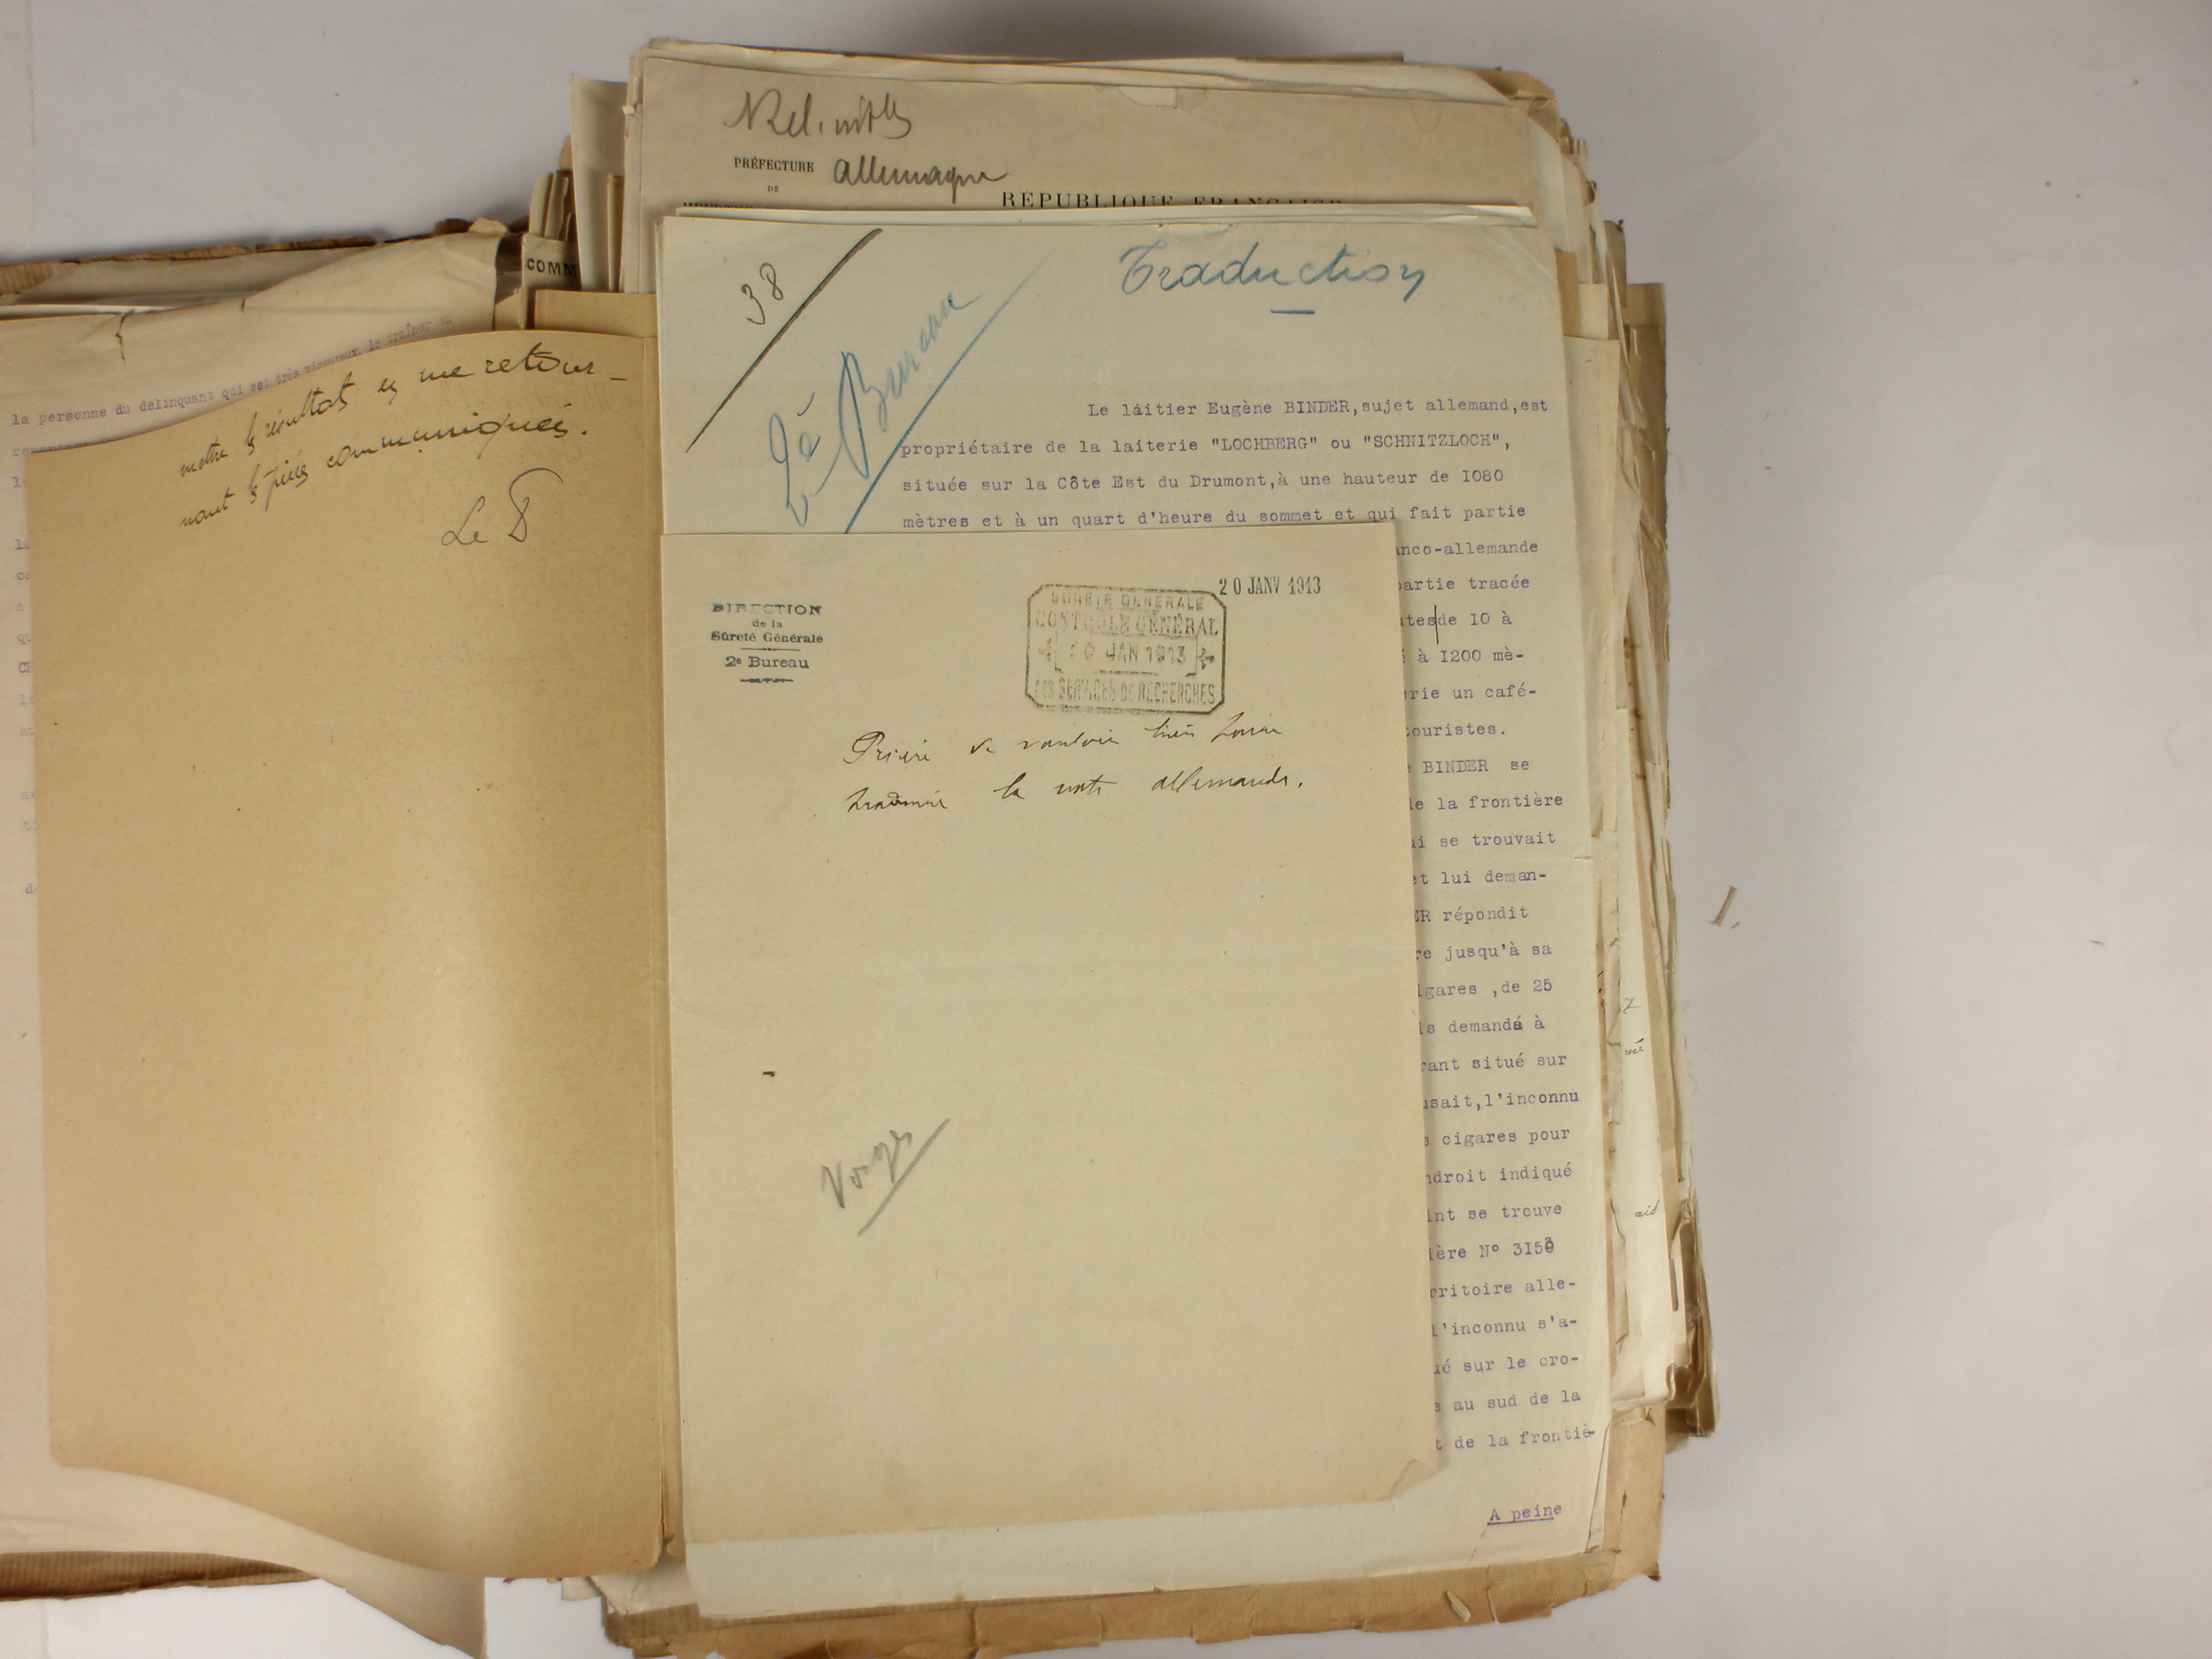 allemagne
PRÉFECTURE
DE
RÉPUBLIQUE FRANÇAISE
COMM
la personne du délinquant qui est très vigoureux, le traîner en
mettre le résultat en me retour-
nant les pièces communiquées.
Le
38
2e Bureau
Traduction
Le laitier Eugène BINDER,sujet allemand,est
propriétaire de la laiterie "LOCHBERG" ou "SCHNITZLOCH",
située sur la Côte Est du Drumont,à une hauteur de I080
mètres et à un quart d'heure du sommet et qui fait partie
nco-allemande
artie tracée
tes de IO à
à I200 mè-
rie un café-
touristes.
BINDER se
e la frontière
i se trouvait
et lui deman-
ER répondit
re jusqu'à sa
igares ,de 25
is demandé à
rant situé sur
usait,l'inconnu
s cigares pour
ndroit indiqué
int se trouve
ière N° 3I53
rritoire alle-
l'inconnu s'a-
ué sur le cro-
s au sud de la
t de la frontiè-
A peine
DIRECTION
de la
Sûreté Générale
2e Bureau
20 JANV 1913
SURETÉ GÉNÉRALE
CONTRÔLE GÉNÉRAL
JAN 1913
DES SERVICES DE RECHERCHES
Prière de vouloir bien faire
traduire la note allemande.
Vosges